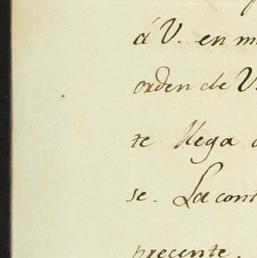 á V. en m
orden de V
te llega
se. La cont
precente.